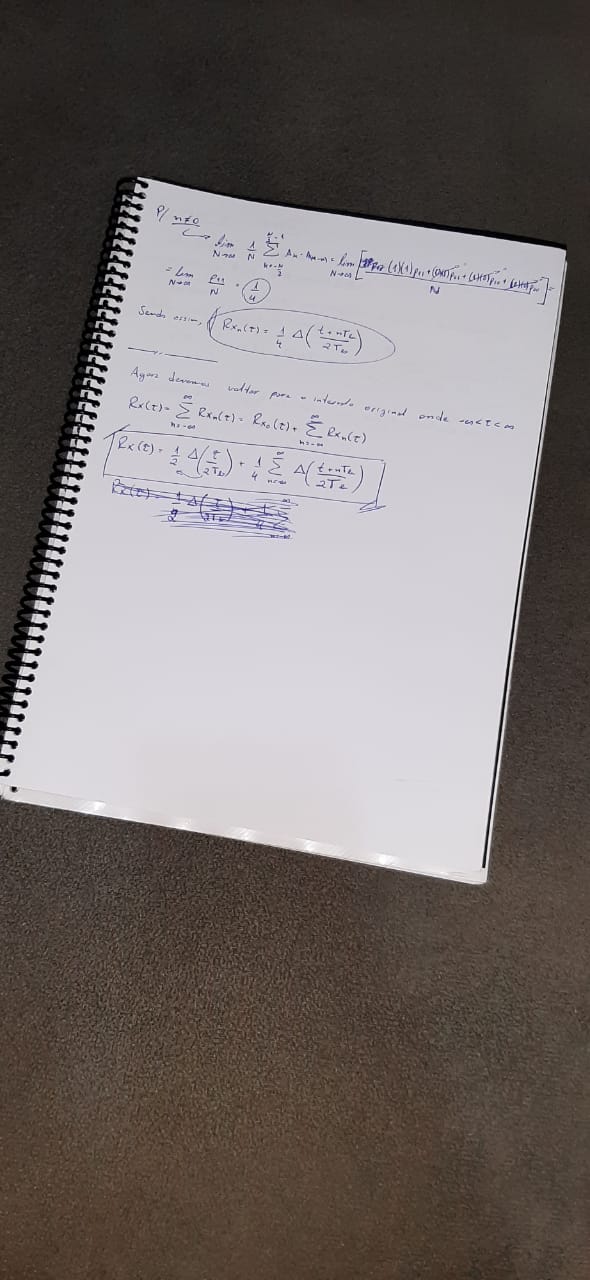 P/ n≠0
↳ lim N→∞ 1/N Σ_{k=-N/2}^{N/2-1} Ak · Ak-n = lim N→∞ [(1)(1)p11 + (0)(1)p01 + (1)(0)p10 + (0)(0)p00 / N] =
= lim N→∞ p11/N = 1/4
Sendo assim, Rxn(τ) = 1/4 Δ(t+nTb/2Tb)
Agora devemos voltar para o intervalo original onde -∞<τ<∞
Rx(τ) = Σ_{n=-∞}^{∞} Rxn(τ) = Rx0(τ) + Σ_{n=-∞}^{∞} Rxn(τ)
Rx(τ) = 1/2 Δ(τ/2Tb) + 1/4 Σ_{n=-∞}^{∞} Δ(t+nTb/2Tb)